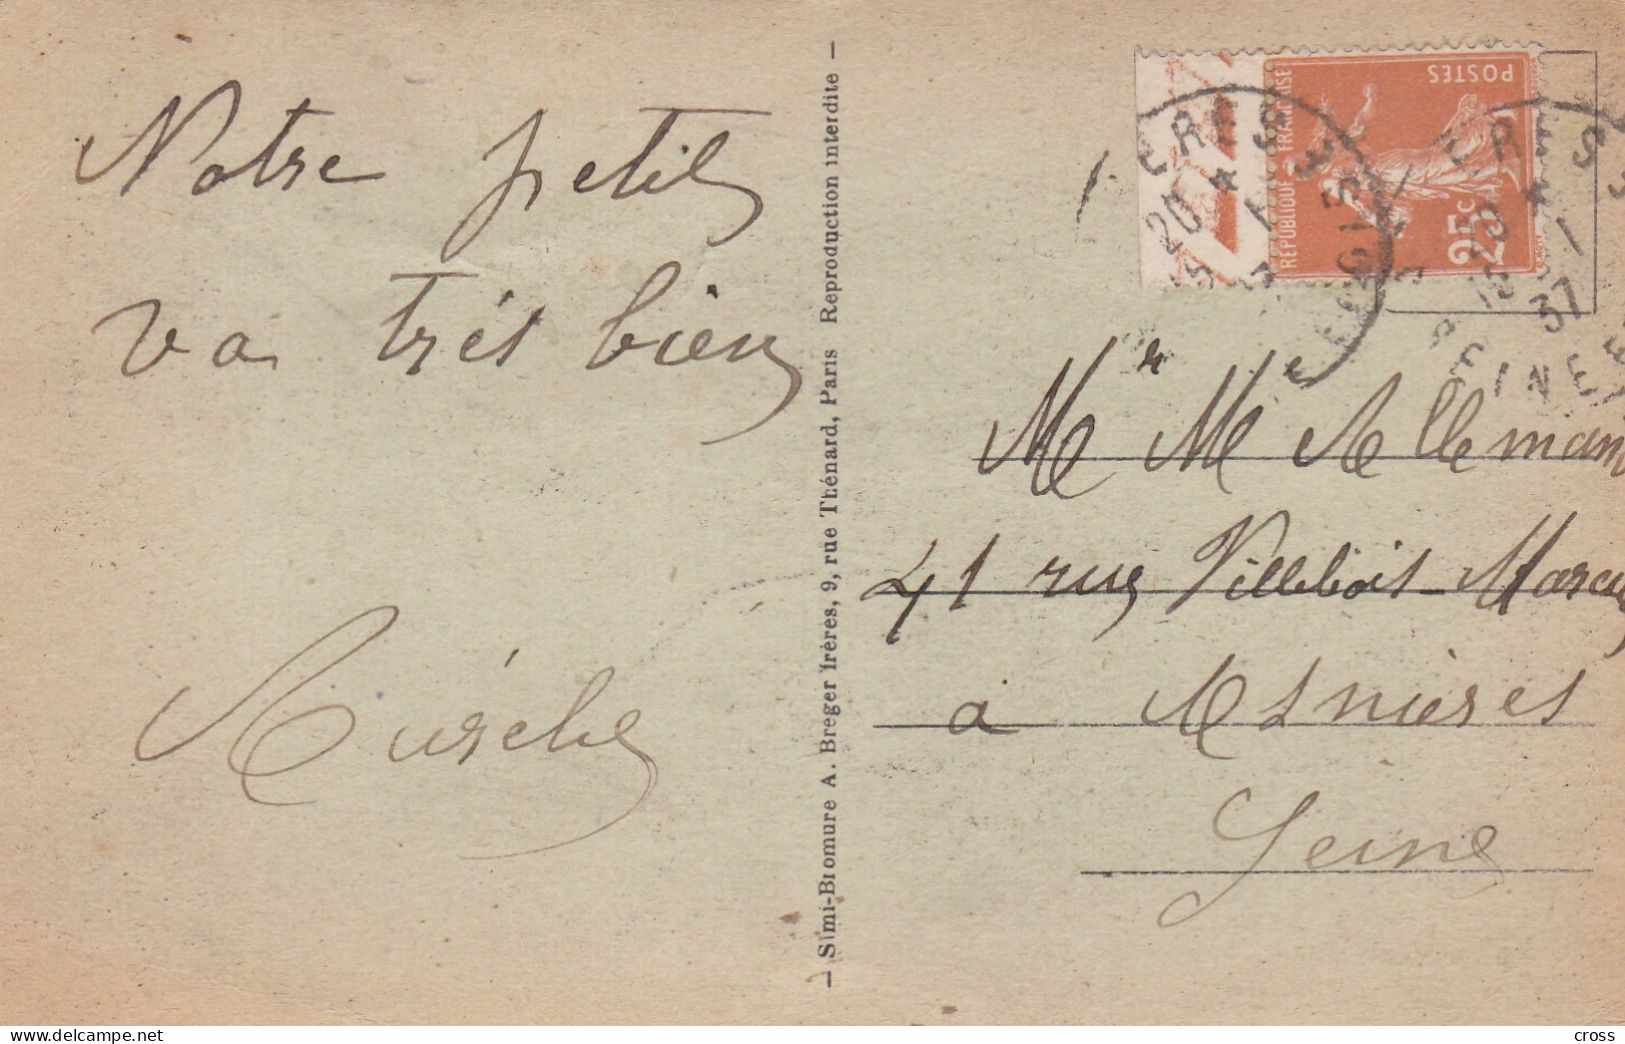 Notre petit
va très bien
— Simi-Bromure A. Breger frères, 9, rue Thénard, Paris Reproduction interdite —
POSTES
REPUBLIQUE FRANCAISE
25c
20 * 1
37
SEINE
Mr Me Allemand
41 rue Villebois-Mareu
à Asnières
Seine
www.delcampe.net
cross